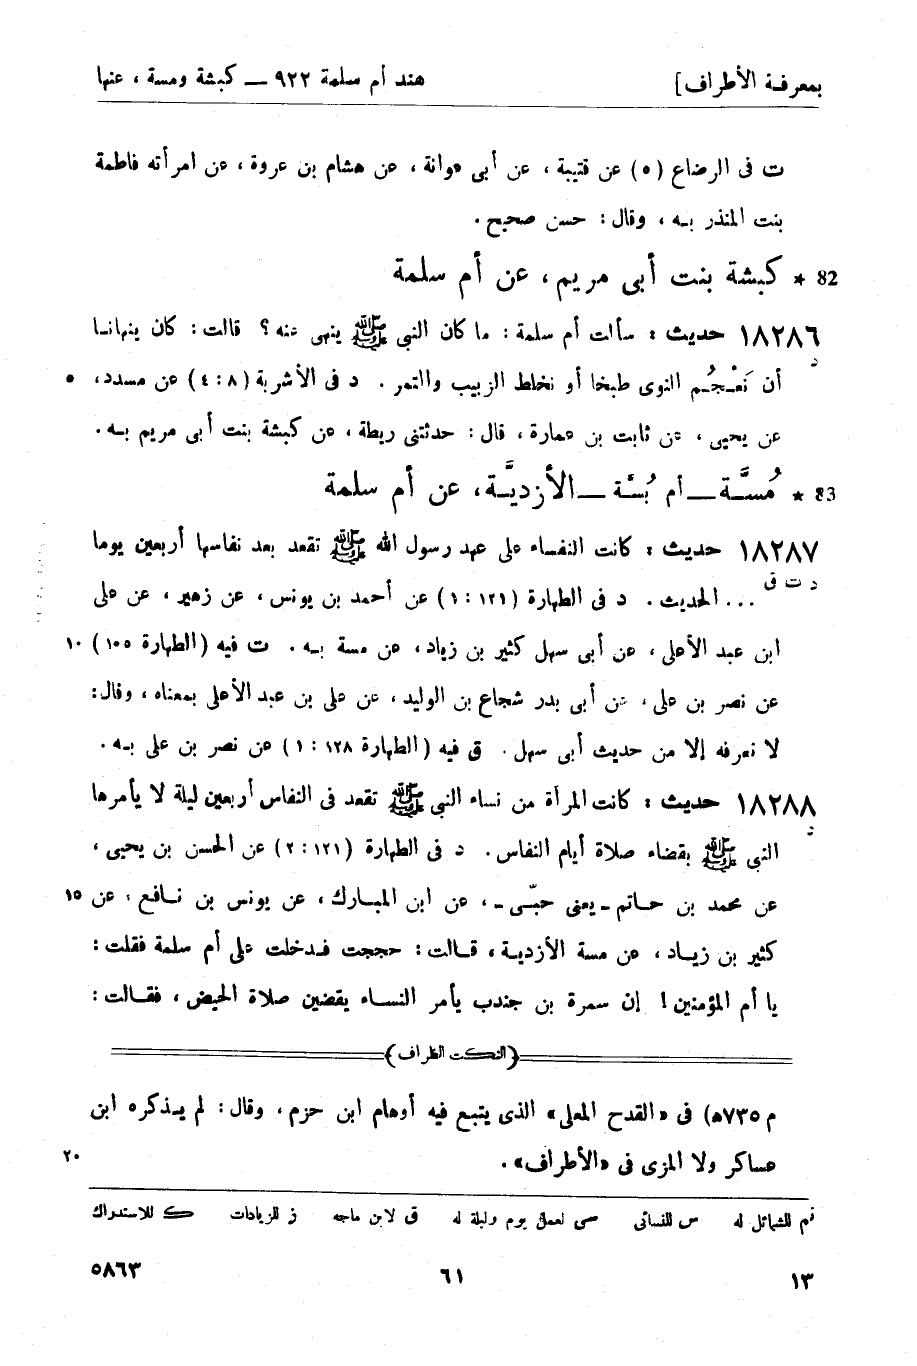 بمعرفة الأطراف] هند أم سلمة ٩٢٢ — كبشة ومسة ، عنها
ت فى الرضاع (٥) عن قتيبة ، عن أبى عوانة ، عن هشام بن عروة ، عن امرأته فاطمة
بنت المنذر بـه ، وقال : حسن صحيح .
82 * كبشة بنت أبى مريم ، عن أم سلمة
١٨٢٨٦ حديث : سألت أم سلمة : ما كان النبى ﷺ ينهى عنه ؟ قالت : كان ينهانـا
د
أن نَعْـجُـم النوى طبخا أو نخلط الزبيب والتمر . د فى الأشربة (٨ : ٤) عن مسدد، ٥
عن يحيى ، عن ثابت بن عمارة ، قال : حدثتنى ريطة ، عن كبشة بنت أبى مريم بـه .
83 * مُسـَّة — أم بُسـَّة — الأزديـَّة، عن أم سلمة
١٨٢٨٧ حديث : كانت النفساء على عهد رسول الله ﷺ تقعد بعد نفاسها أربعين يوما
د ت ق
... الحديث . د فى الطهارة (١٢١ : ١) عن أحمد بن يونس ، عن زهير ، عن على
ابن عبد الأعلى ، عن أبى سهل كثير بن زياد، عن مسة بـه . ت فيه (الطهارة ١٠٥) ١٠
عن نصر بن على ، عن أبى بدر شجاع بن الوليد ، عن على بن عبد الأعلى بمعناه ، وقال :
لا نعرفه إلا من حديث أبى سهل . ق فيه (الطهارة ١٢٨ : ١) عن نصر بن على بـه .
١٨٢٨٨ حديث : كانت المرأة من نساء النبى ﷺ تقعد فى النفاس أربعين ليلة لا يأمرها
د
النبى ﷺ بقضاء صلاة أيام النفاس . د فى الطهارة (١٢١ : ٢) عن الحسن بن يحيى ،
عن محمد بن حـاتم ـ يعنى حبّـى ـ ، عن ابن المبـارك ، عن يونس بن نـافـع ، عن ١٥
كثير بن زيـاد ، عن مسة الأزديـة ، قـالت : حججت فـدخلت على أم سلمة فقلت :
يا أم المؤمنين ! إن سمرة بن جندب يأمر النساء يقضين صلاة الحيض ، فقـالت :
(النكت الظراف)
م ٧٣٥هـ) فى «القدح المعلى» الذى يتبع فيه أوهام ابن حزم ، وقال : لم يـذكره ابن
عساكر ولا المزى فى «الأطراف» . ٢٠
تم للشمائل له س للنسائى سى لعمل يوم وليلة له ق لابن ماجه ز للزيادات ك للاستدراك
١٣ ٦١ ٥٨٦٣